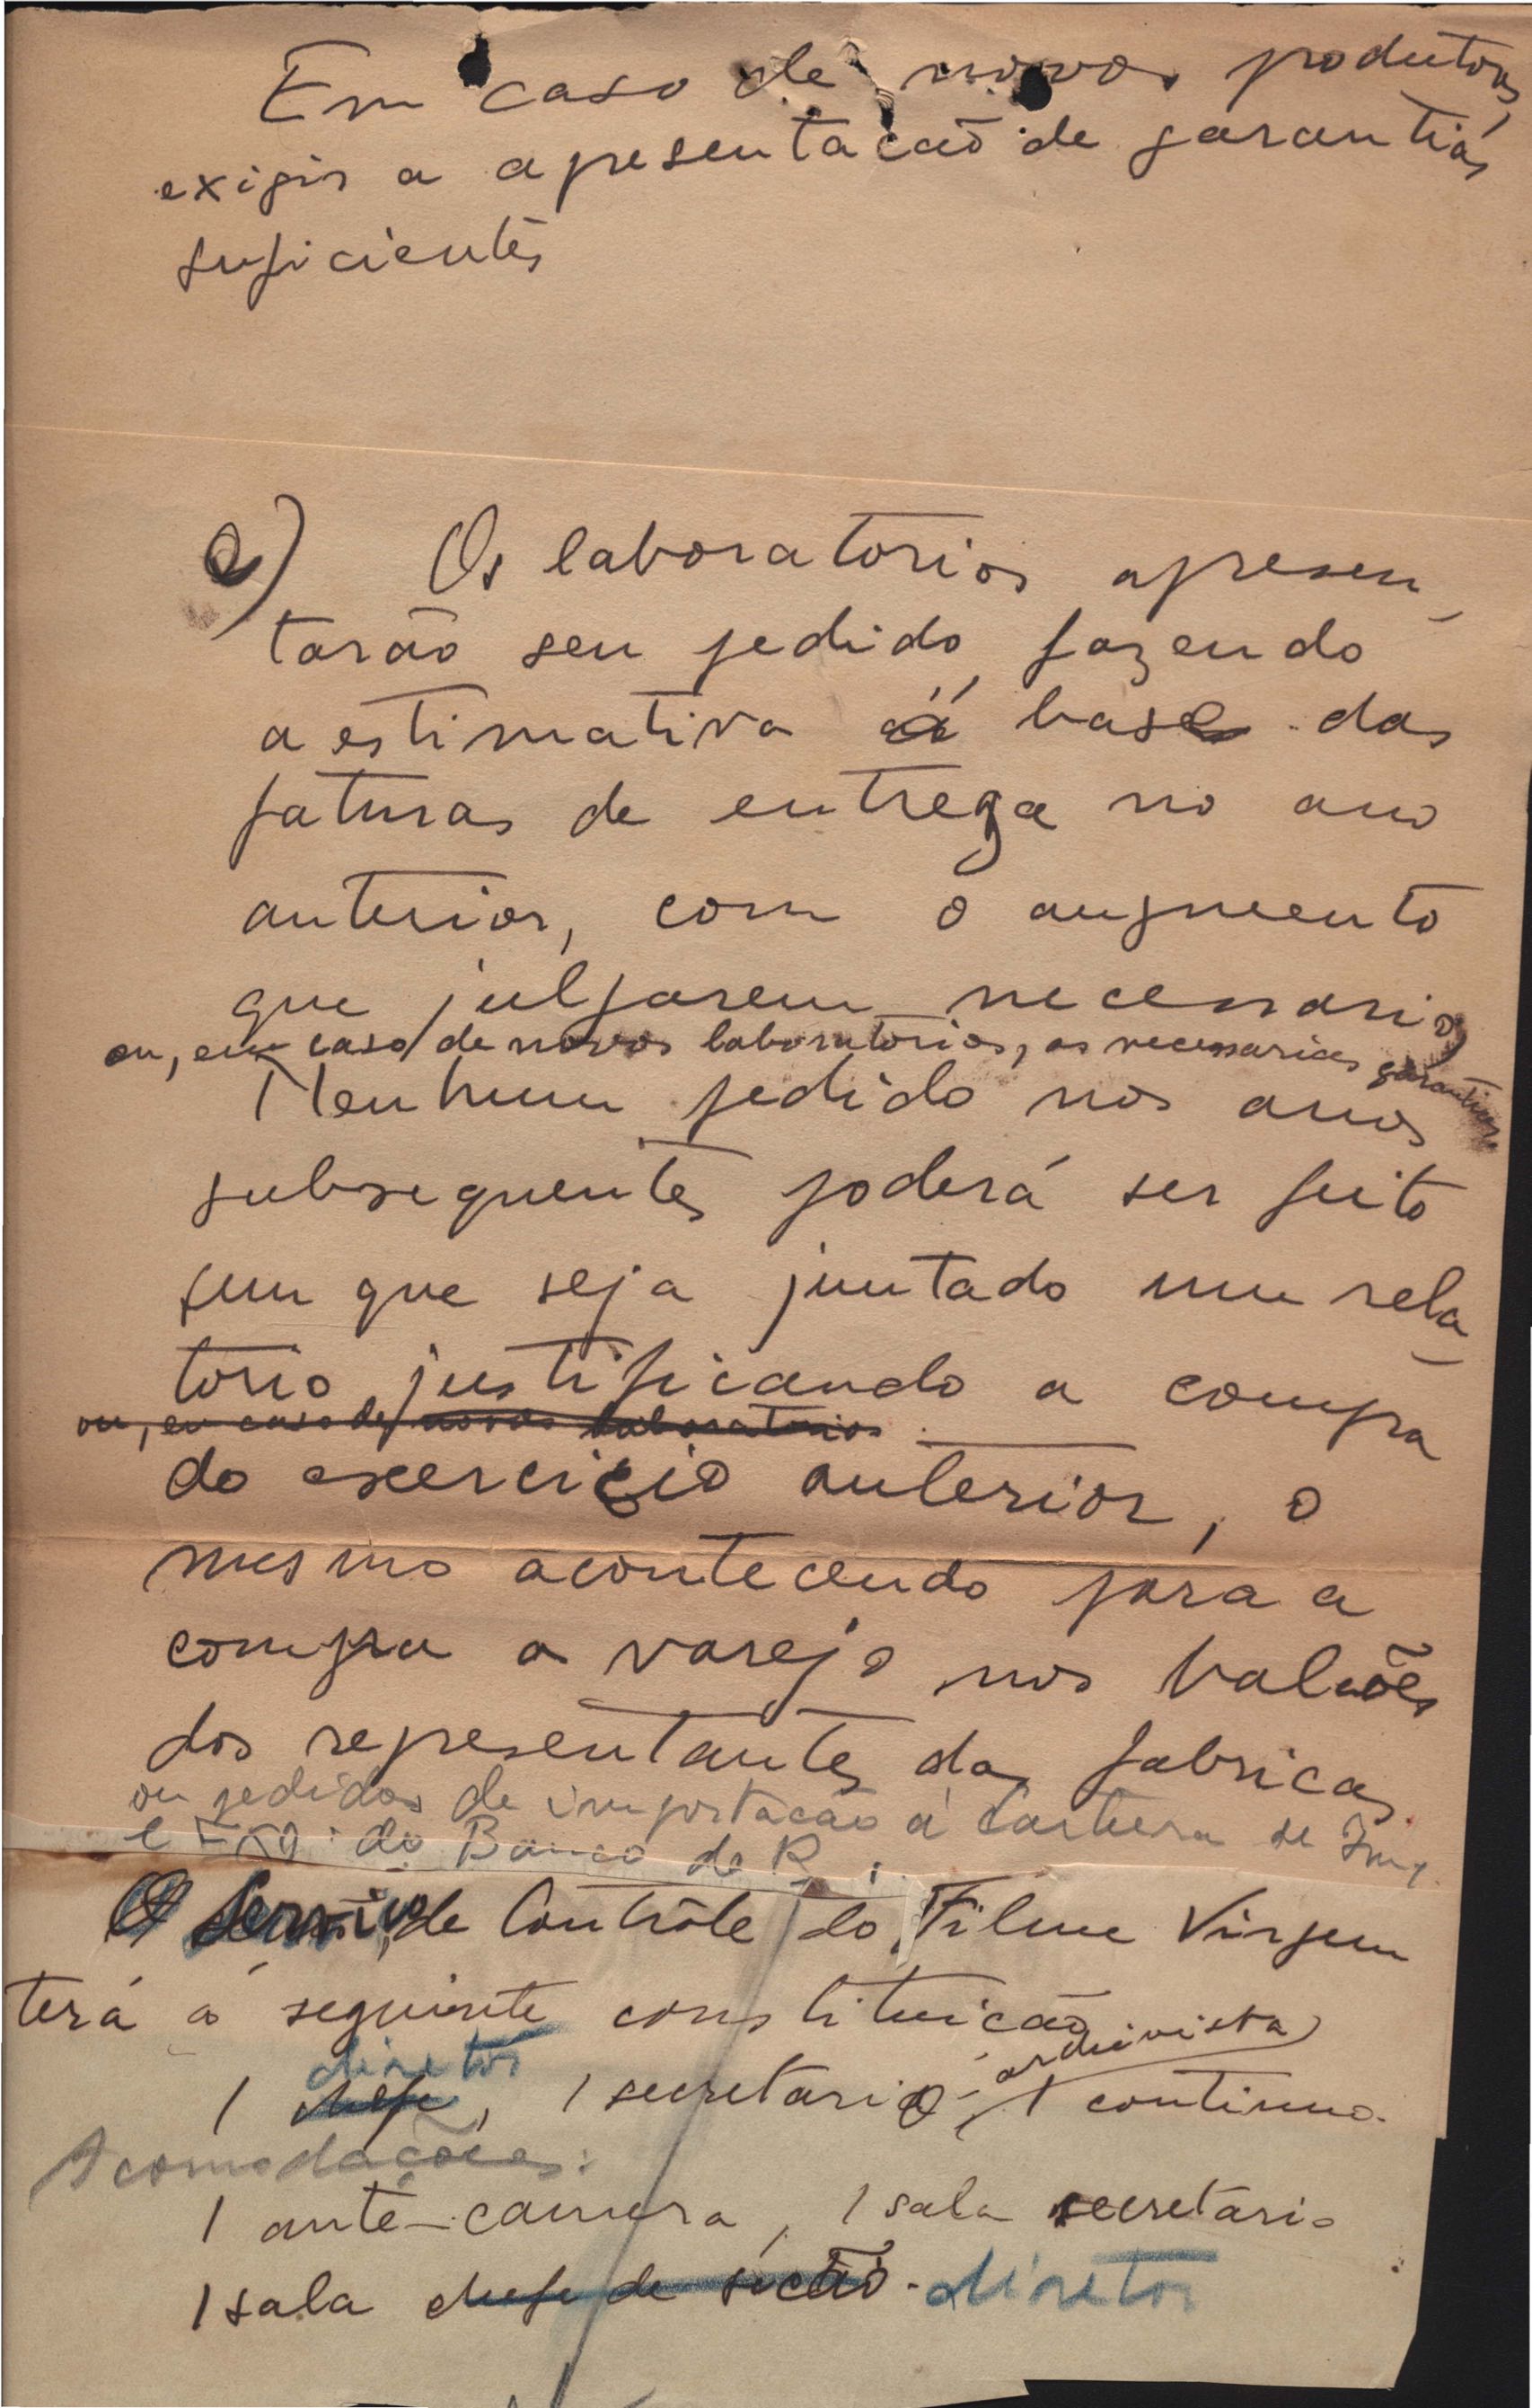 Em caso de novos produtores
exigir a apresentação de garantias
suficientes
e) Os laboratorios apresen-
tarão seu pedido, fazendo
a estimativa á base das
faturas de entrega no ano
anterior, com o augmento
que julgarem necessario,
ou, em caso de novos laboratorios, as necessarias garantias
Nenhum pedido nos anos
subsequentes poderá ser feito
sem que seja juntado um rela-
torio, justificando a compra
ou, em caso de novos laboratorios
do exercicio anterior, o
mesmo acontecendo para a
compra a varejo nos balcões
dos representantes das fabricas
ou pedidos de importação á Carteira de Imp.
e Exp. do Banco do
O Serviço de Contrôle do Filme Virgem
terá a seguinte constituição
diretor archivista
1 chefe, 1 secretario, 1 continuo.
Acomodações:
1 ante-camera, 1 sala secretario
1 sala chefe de secção. diretor